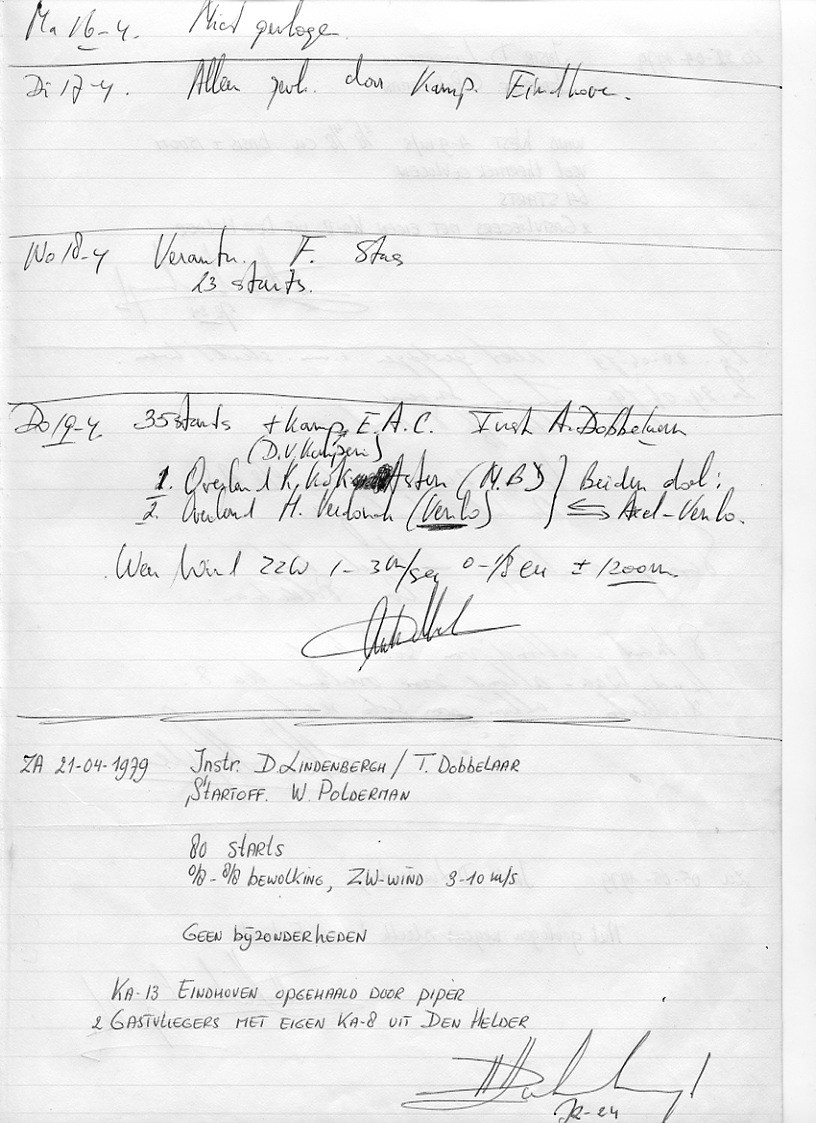 Ma 16-4. Niet gevlogen.
Di 17-4. Alleen gevl. door Kamp. Eindhoven.
Wo 18-4 Verantw. F. Stas
23 starts.
Do 19-4. 35 starts + Kamp. E.A.C. Instr. A. Dobbelaar
(D.V. Kampen)
1. Overland K. Kok Asten (N.B) } Beiden doel:
2. Overland H. Verdonck (Venlo) } Axel-Venlo.
Weer Wind ZZW 1-3 m/sec 0-1/8 cu ± 1200m.
ZA 21-04-1979 Instr. D. Lindenbergh / T. Dobbelaar
Startoff. W. Polderman
80 starts
0/8 - 8/8 bewolking, ZW-wind 3-10 m/s
Geen bijzonderheden
Ka-13 Eindhoven opgehaald door piper
2 Gastvliegers met eigen Ka-8 uit Den Helder